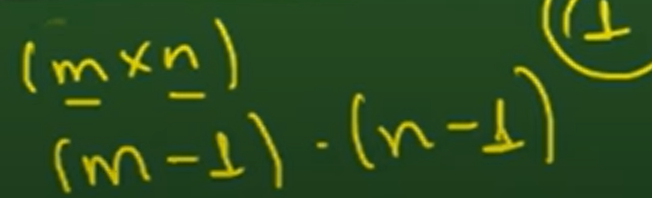 (m × n)
(m - 1) · (n - 1)
(1